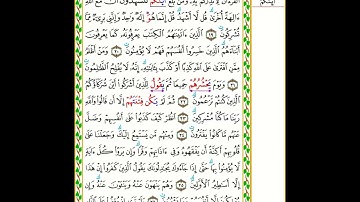 الْقُرْءَانُ لِأُنذِرَكُم بِهِۦ وَمَنۢ بَلَغَ أَئِنَّكُمْ لَتَشْهَدُونَ أَنَّ مَعَ اللَّهِ
ءَالِهَةً أُخْرَىٰ قُل لَّا أَشْهَدُ قُلْ إِنَّمَا هُوَ إِلَٰهٌ وَٰحِدٌ وَإِنَّنِى بَرِىٓءٌ مِّمَّا
تُشْرِكُونَ ١٩ الَّذِينَ ءَاتَيْنَٰهُمُ الْكِتَٰبَ يَعْرِفُونَهُۥ كَمَا يَعْرِفُونَ
أَبْنَآءَهُمُ الَّذِينَ خَسِرُوٓا أَنفُسَهُمْ فَهُمْ لَا يُؤْمِنُونَ ٢٠ وَمَنْ أَظْلَمُ
مِمَّنِ افْتَرَىٰ عَلَى اللَّهِ كَذِبًا أَوْ كَذَّبَ بِـَٔايَٰتِهِۦٓ إِنَّهُۥ لَا يُفْلِحُ الظَّٰلِمُونَ
٢١ وَيَوْمَ يَحْشُرُهُمْ جَمِيعًا ثُمَّ يَقُولُ لِلَّذِينَ أَشْرَكُوٓا أَيْنَ شُرَكَآؤُكُمُ
الَّذِينَ كُنتُمْ تَزْعُمُونَ ٢٢ ثُمَّ لَمْ يَكُن فِتْنَتَهُمْ إِلَّآ أَن قَالُوا وَاللَّهِ
رَبِّنَا مَا كُنَّا مُشْرِكِينَ ٢٣ انظُرْ كَيْفَ كَذَبُوا عَلَىٰٓ أَنفُسِهِمْ وَضَلَّ
عَنْهُم مَّا كَانُوا يَفْتَرُونَ ٢٤ وَمِنْهُم مَّن يَسْتَمِعُ إِلَيْكَ وَجَعَلْنَا عَلَىٰ
قُلُوبِهِمْ أَكِنَّةً أَن يَفْقَهُوهُ وَفِىٓ ءَاذَانِهِمْ وَقْرًا وَإِن يَرَوْا كُلَّ ءَايَةٍ
لَّا يُؤْمِنُوا بِهَا حَتَّىٰٓ إِذَا جَآءُوكَ يُجَٰدِلُونَكَ يَقُولُ الَّذِينَ كَفَرُوٓا إِنْ هَٰذَآ
إِلَّآ أَسَٰطِيرُ الْأَوَّلِينَ ٢٥ وَهُمْ يَنْهَوْنَ عَنْهُ وَيَنْـَٔوْنَ عَنْهُ وَإِن
أَئِنَّكُمْ